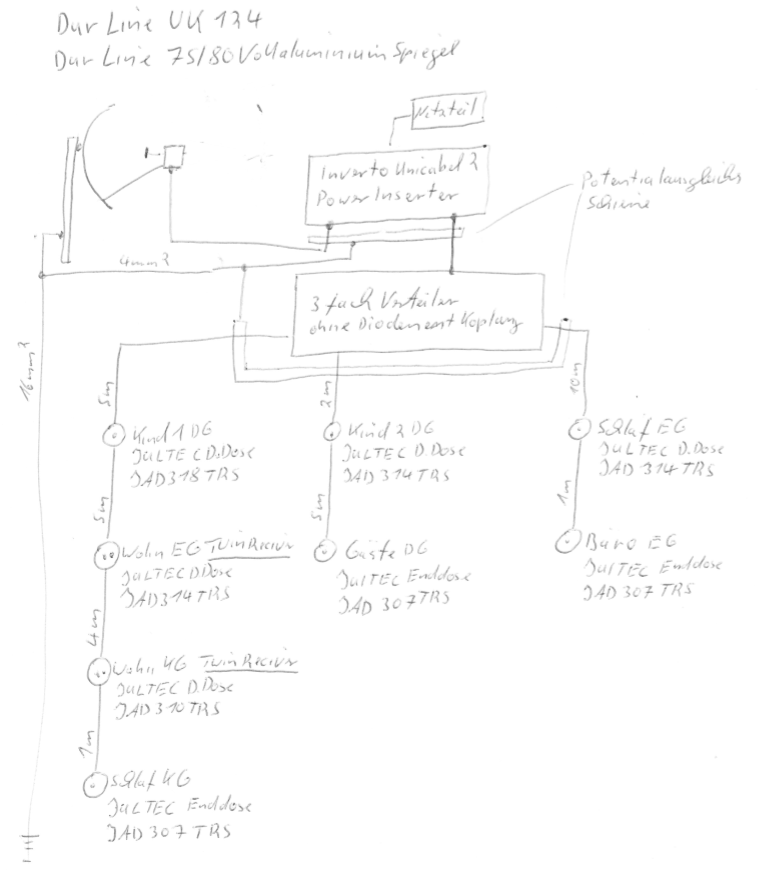 Dur Line UK 124
Dur Line 75/80 Vollaluminium Spiegel
Netzteil
Inverto Unicabel 2
Power Inserter
Potentialausgleichs
Schiene
4mm²
3 fach Verteiler
ohne Diodenent Koplung
16mm²
5m
2m
10m
Kind 1 DG
JULTEC D.Dose
JAD318TRS
Kind 2 DG
JULTEC D.Dose
JAD 314TRS
Schlaf EG
JULTEC D.Dose
JAD 314TRS
5m
5m
1m
Wohn EG Twin Reciver
JULTEC D.Dose
JAD314TRS
Gäste DG
JULTEC Enddose
JAD 307TRS
Büro EG
JULTEC Enddose
JAD 307TRS
4m
Wohn KG Twin Reciver
JULTEC D.Dose
JAD 310 TRS
1m
Schlaf KG
JULTEC Enddose
JAD 307 TRS